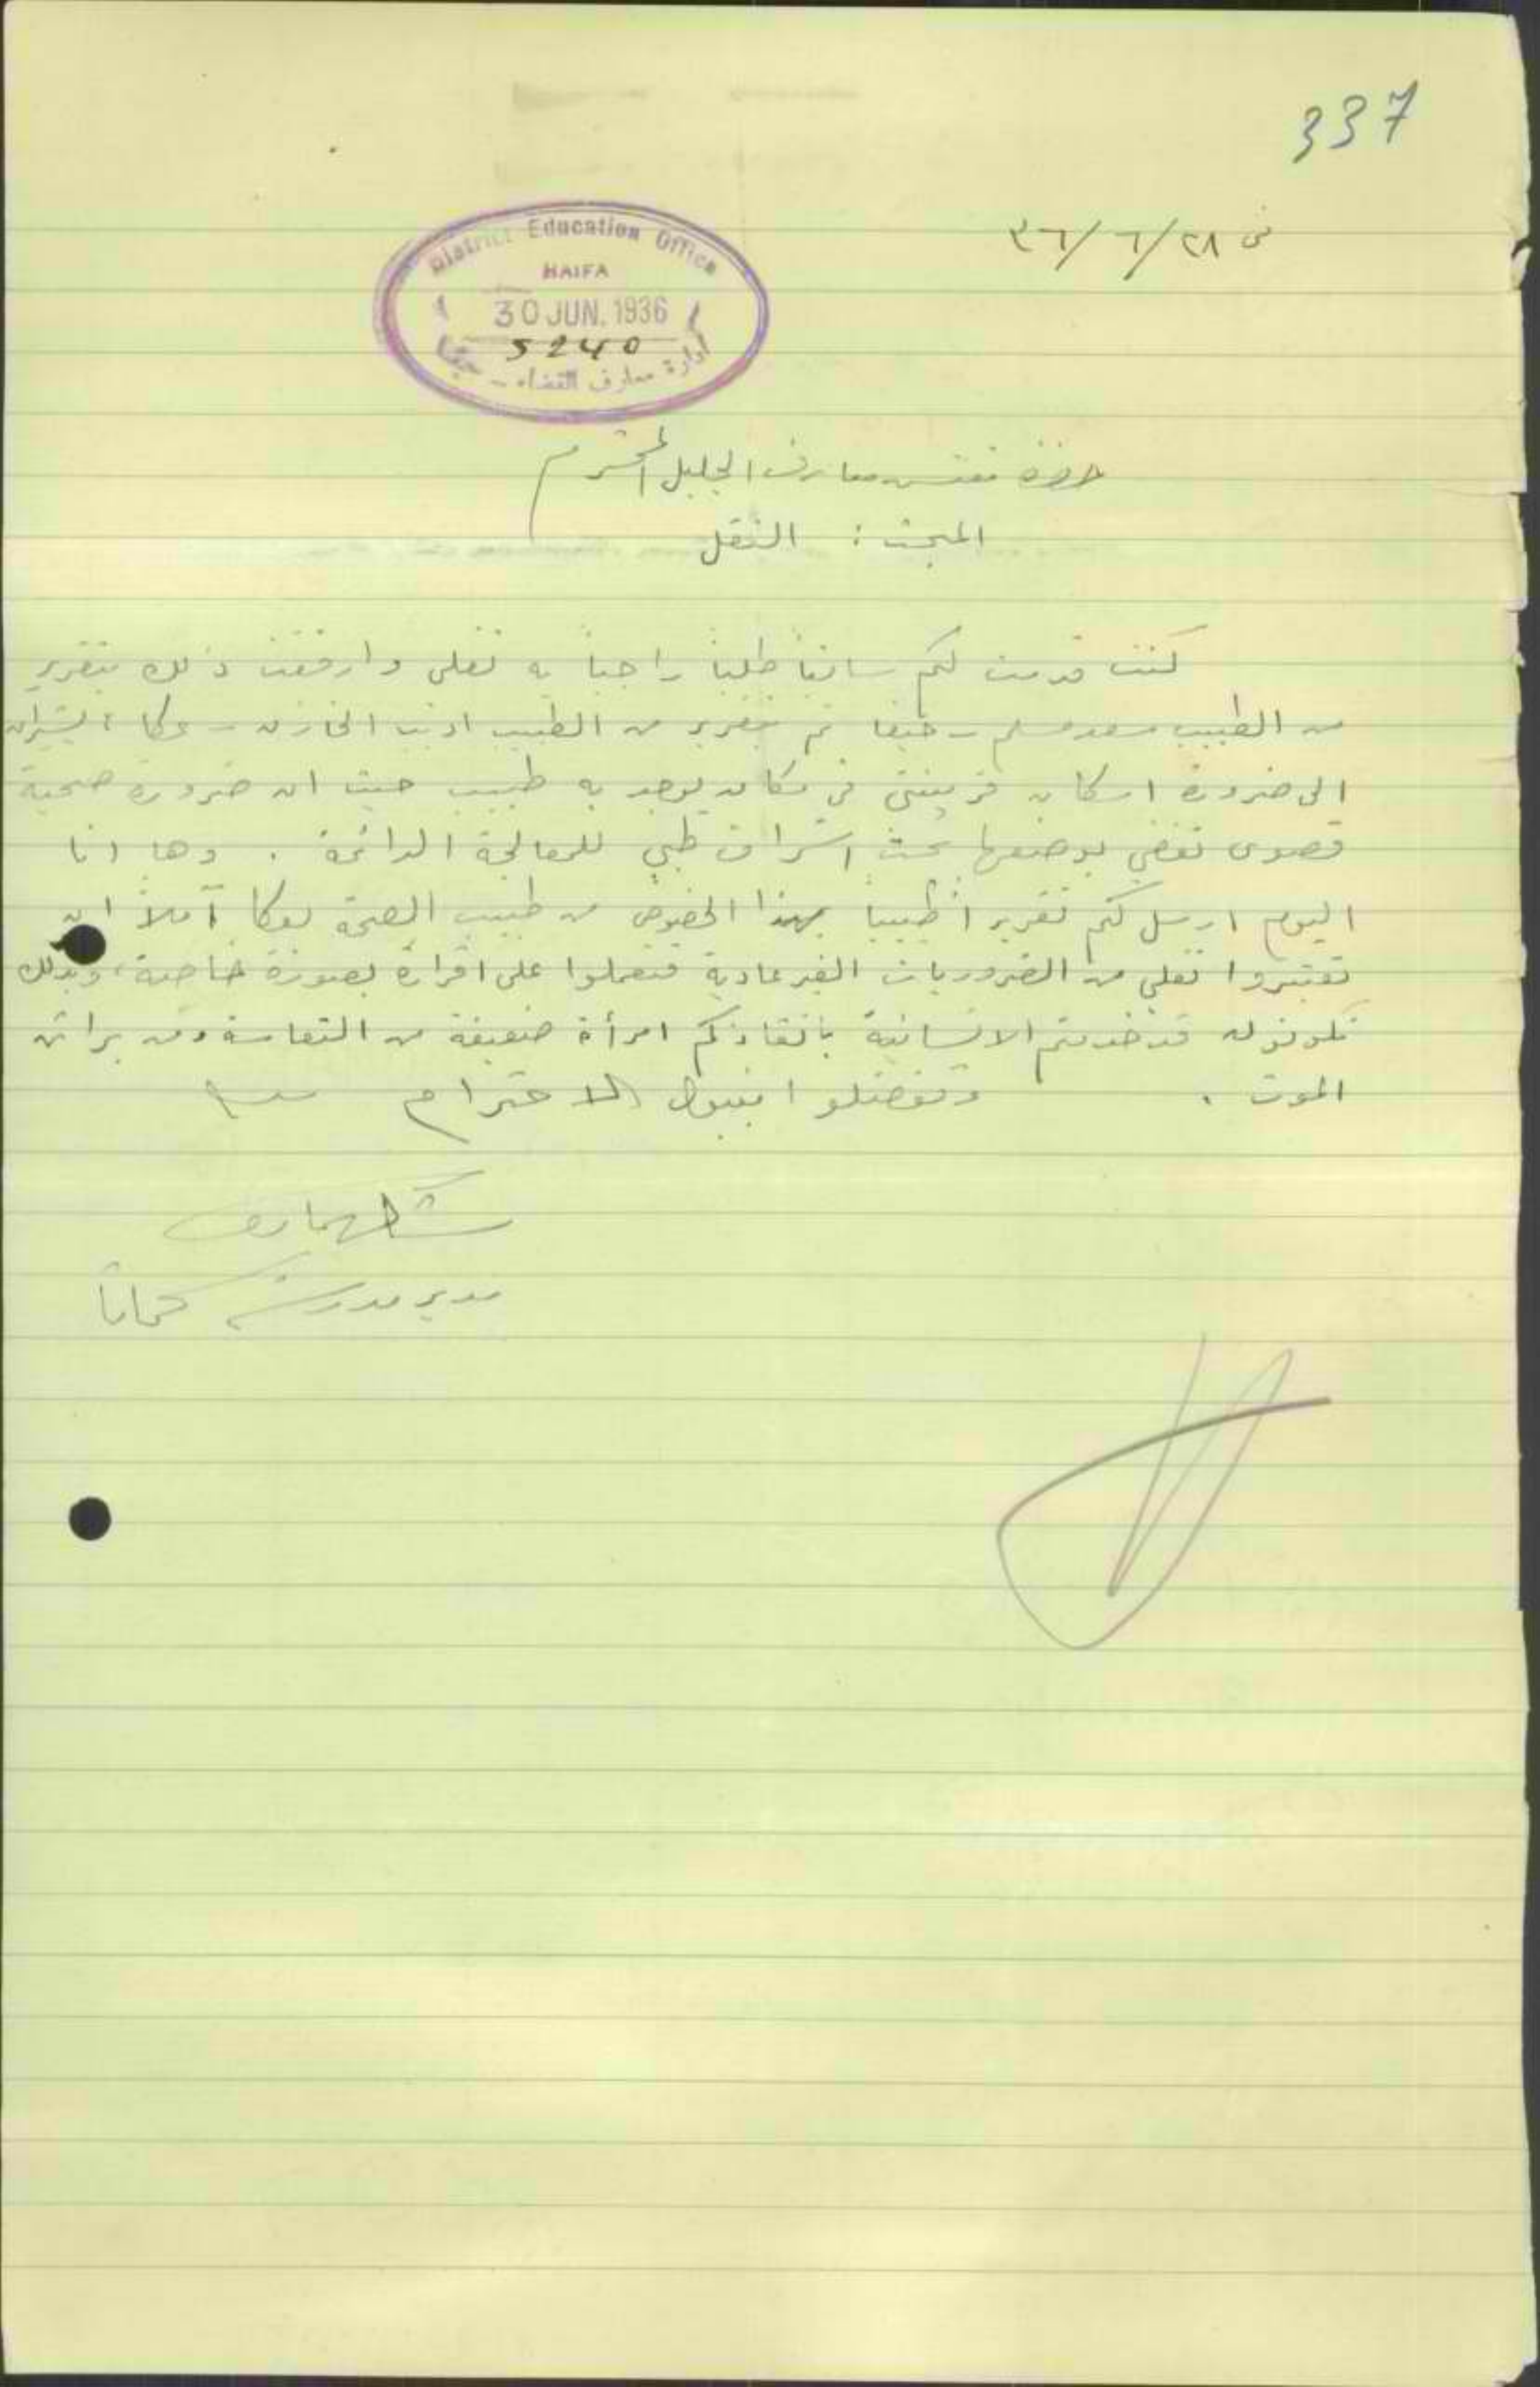 337
في ٢٨/٦/٣٦
District Education Office
HAIFA
30 JUN. 1936
5240
ادارة معارف القضاء - حيفا
حضرة مفتش معارف الجليل المحترم
المبحث : النقل
كنت قدمت لكم سابقاً طلباً راجياً به نقلي وارفقت ذلك بتقرير
من الطبيب سعد مسلم - حيفا ثم بتقرير من الطبيب الخازن - عكا يشيران
الى ضرورة اسكان قرينتي في مكان يوجد به طبيب حيث ان ضرورة صحية
قصوى تقضي بوضعها تحت اشراف طبي للمعالجة الدائمة . وها انا
اليوم ارسل لكم تقريراً طبياً بهذا الخصوص من طبيب الصحة بعكا آملاً ان
تعتبروا نقلي من الضروريات الغير عادية فتعملوا على اقراره بصورة خاصة، وبذلك
تكونون قد خدمتم الانسانية بانقاذكم امرأة ضعيفة من التعاسة ومن براثن
الموت . وتفضلوا بقبول الاحترام
مدير مدرسة